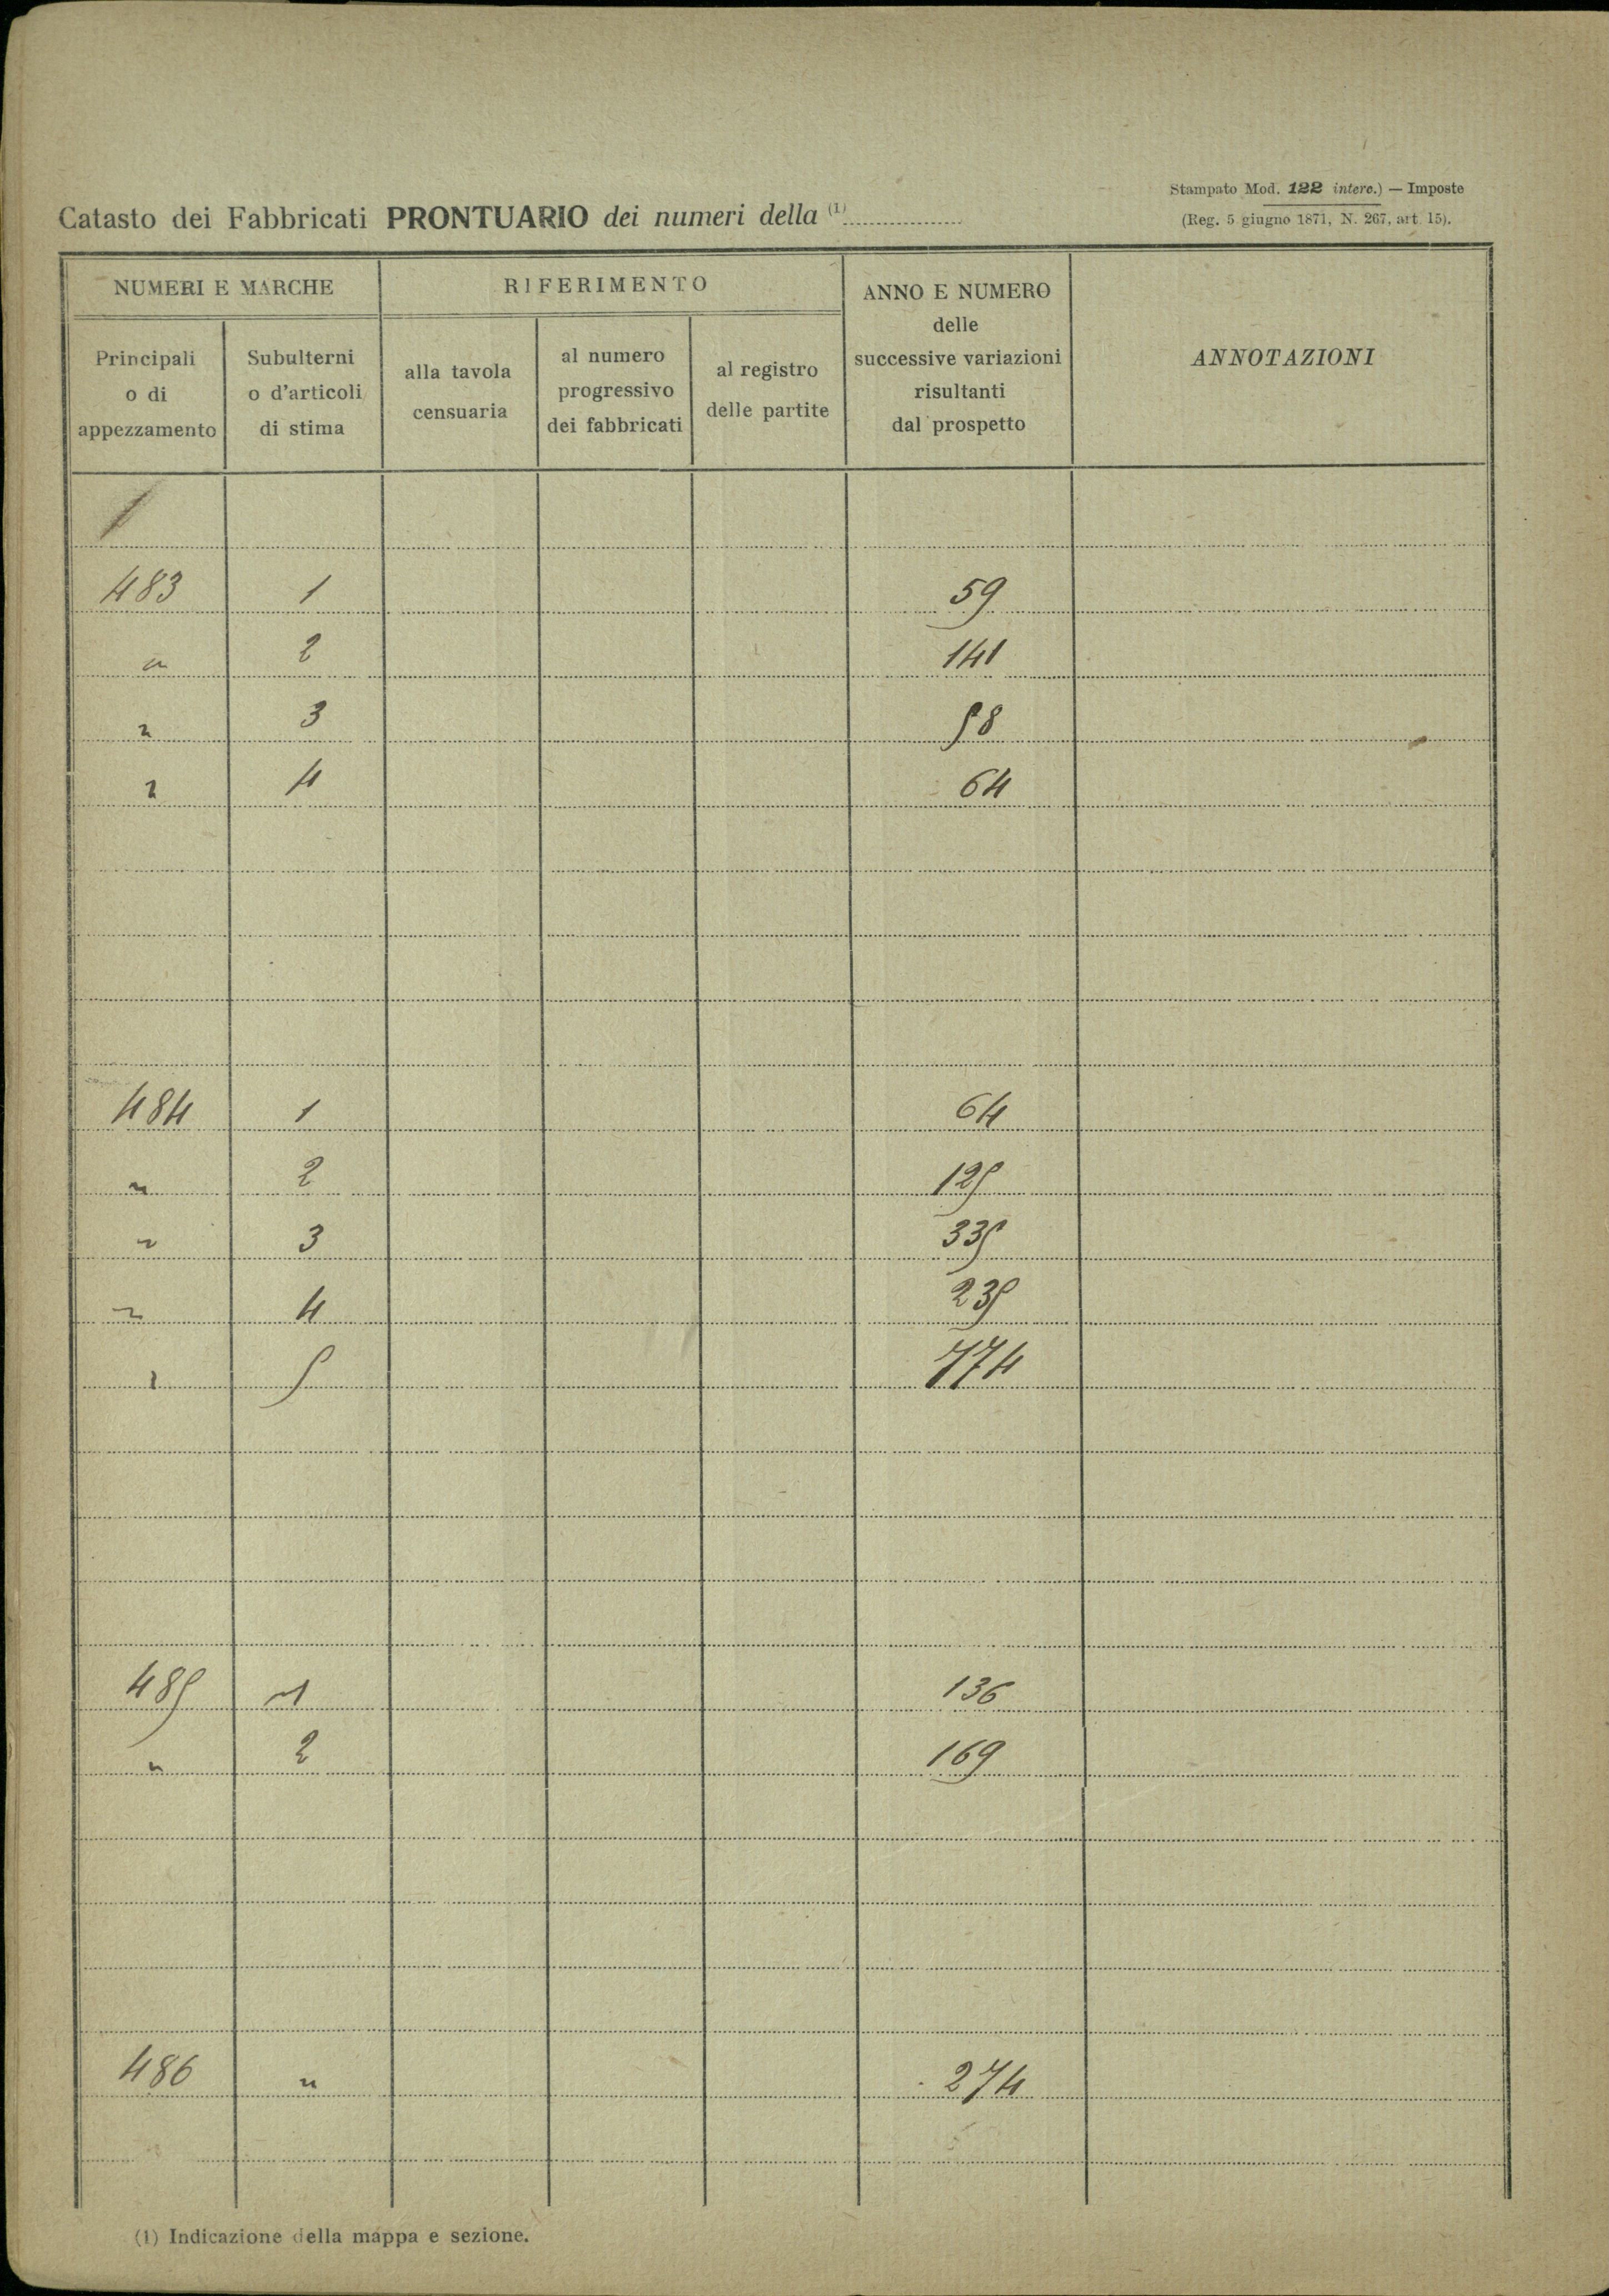 Stampato Mod. 122 interc.) — Imposte
(Reg. 5 giugno 1871, N. 267, art. 15).
Catasto dei Fabbricati PRONTUARIO dei numeri della (1)
NUMERI E MARCHE
RIFERIMENTO
ANNO E NUMERO
delle
successive variazioni
risultanti
dal prospetto
ANNOTAZIONI
Principali
o di
appezzamento
Subulterni
o d'articoli
di stima
alla tavola
censuaria
al numero
progressivo
dei fabbricati
al registro
delle partite
483 1 59
" 2 141
" 3 58
" 4 64
484 1 64
" 2 125
" 3 335
" 4 235
" 5 774
485 1 136
" 2 169
486 " 274
(1) Indicazione della mappa e sezione.